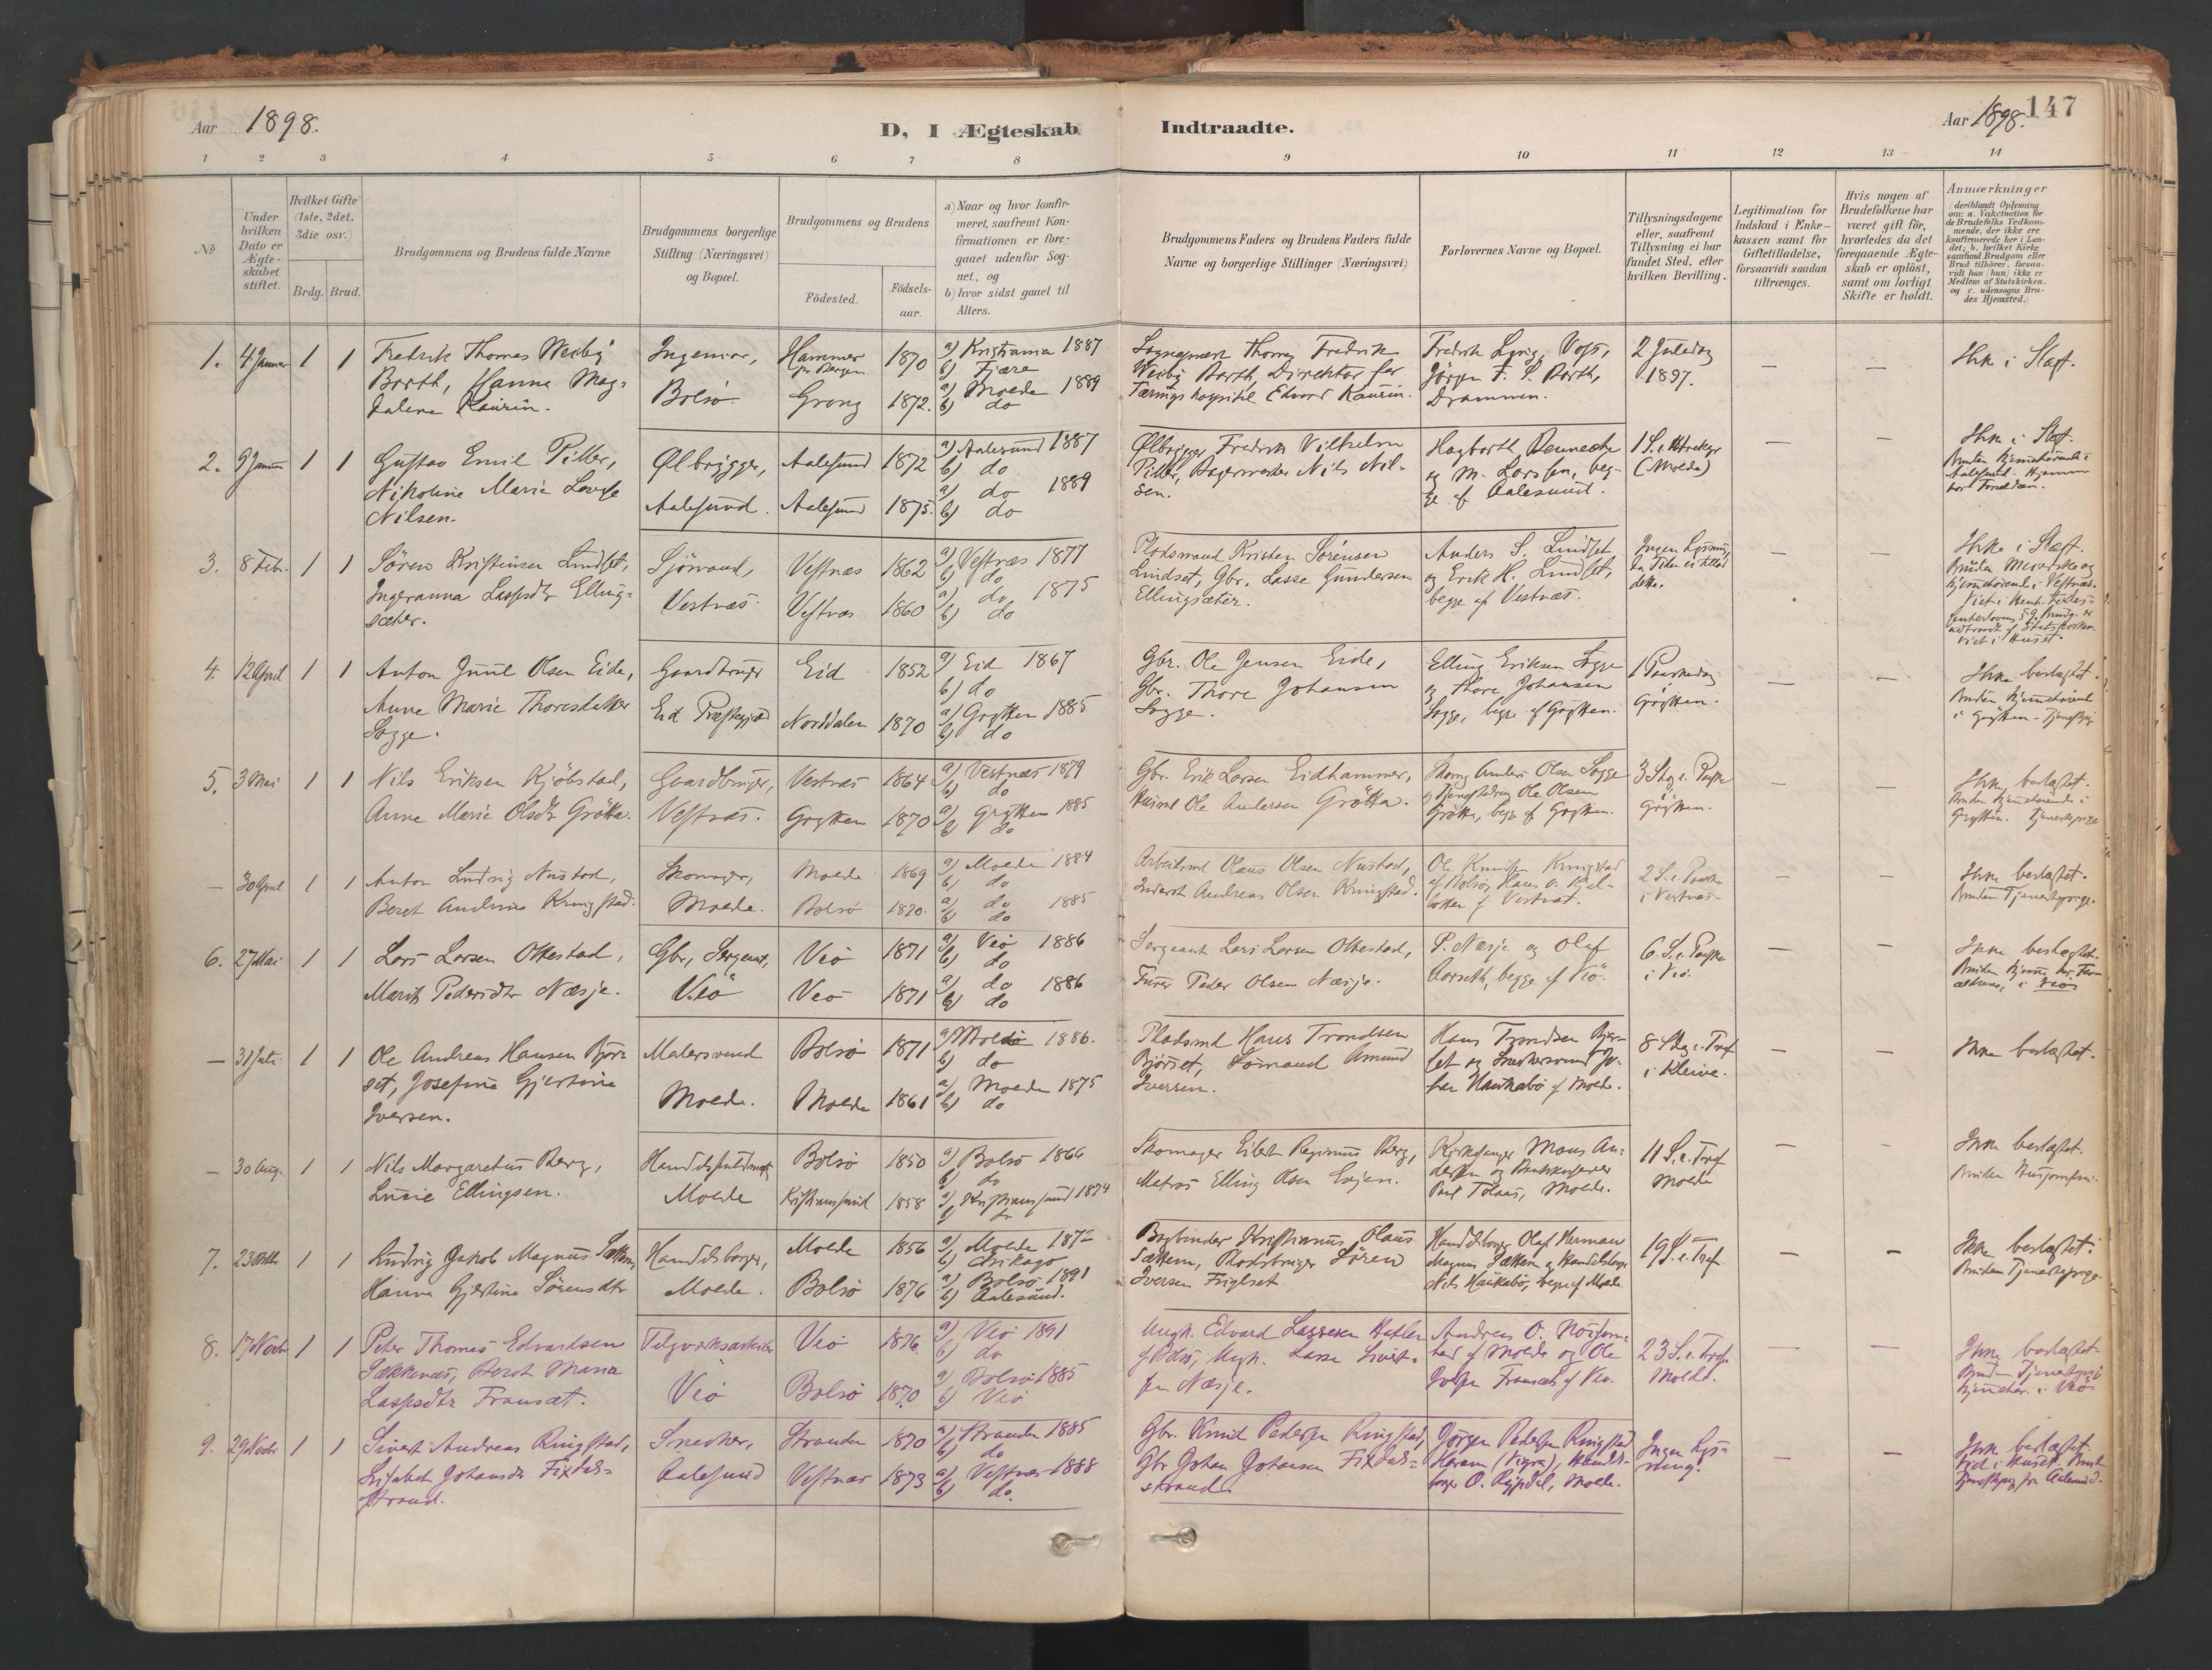 Aar 1898.
D, I Ægteskab Indtraadte.
Aar 1898. 147
1 2 3 4 5 6 7 8 9 10 11 12 13 14
No
Under hvilken Dato er Ægteskabet stiftet.
Hvilket Gifte (1ste, 2det, 3die osv.)
Brdg. Brud.
Brudgommens og Brudens fulde Navne
Brudgommens borgerlige Stilling (Næringsvei) og Bopæl.
Brudgommens og Brudens
Födested.
Födsels-aar.
a) Naar og hvor konfir-
meret, saafremt Kon-
firmationen er fore-
gaaet udenfor Sog-
net, og
b) hvor sidst gaaet til
Alters.
Brudgommens Faders og Brudens Faders fulde
Navne og borgerlige Stillinger (Næringsvei)
Forlovernes Navne og Bopæl.
Tillysningsdagene
eller, saafremt
Tillysning ei har
fundet Sted, efter
hvilken Bevilling.
Legitimation for
Indskud i Enke-
kassen samt for
Giftetilladelse,
forsaavidt saadan
tiltrænges.
Hvis nogen af
Brudefolkene har
været gift för,
hvorledes da det
foregaaende Ægte-
skab er oplöst,
samt om lovligt
Skifte er holdt.
Anmærkninger
(deriblandt Oplysning
om: a. Vakcination for
de Brudefolks Vedkom-
mende, der ikke ere
konfirmerede her i Lan-
det; b. hvilket Kirke-
samfund Brudgom eller
Brud tilhörer, forsaa-
vidt han (hun) ikke er
Medlem af Statskirken.
og c. udensogns Bru-
des Hjemsted.)
1. 4 Januar 1 1
Fredrik Thomas Weiby
Barth, Hanna Mag-
dalena Kaurin.
Ingeniør,
Bolsö
Hammer
pr Bergen 1870
Grong 1872.
a) Kristiania 1887
b) Fjære
a) Molde 1889
b) do
Sogneprest Thomas Fredrik
Weiby Barth, Direktør for
Tærings hospitil Edvard Kaurin.
Fredrik Lyng Vogt,
Jörgen F. S. Barth,
Drammen.
2 Juledag
1897.
Ikke i Slægt.
2. 9 Januar 1 1
Gustav Emil Piller,
Nikoline Marie Lovise
Nilsen.
Ølbrygger,
Aalesund.
Aalesund 1872
Aalesund 1875.
a) Aalesund 1887
b) do
a) do 1889
b) do
Ølbrygger Fredrik Vilhelm
Piller, Bagermester Nils Nil-
sen.
Hagbarth Dennecke
og M. Larssen, beg-
ge af Aalesund.
(Molde)
Ikke i Slægt.
Bruden hjemmehörende i
Aalesund. Hjemme
hos Forældre.
3. 8 Febr. 1 1
Sören Kristensen Lindset,
Ingeranna Lassesdtr Elling-
sæter.
Sjömand,
Vestnæs.
Vestnæs 1862
Vestnæs 1860
a) Vestnæs 1877
b) do
a) do 1875
b) do
Pladsmand Kristen Sörensen
Lindset, Gbr. Lasse Gundersen
Ellingsæter.
Anders S. Lindset
og Erik H. Lindset,
begge af Vestnæs.
Ingen Lysning,
da Tiden ei tillod
dette.
Ikke i Slægt.
Viet i Huset.
4. 12 April 1 1
Anton Juul Olsen Eide,
Anne Marie Thoresdatter
Sogge.
Gaardbruger
Eid Præstegjeld
Eid 1852
Norddalen 1870
a) Eid 1867
b) do
a) Grytten 1885
b) do
Gbr. Ole Jensen Eide,
Gbr. Thore Johansen
Sogge.
Elling Eriksen Sogge
og Thore Johansen
Sogge, begge af Grytten.
1 Paaskedag
Grytten.
Ikke beslægtet.
Bruden hjemmehörende
i Grytten - Tjenestepig
5. 3 Mai 1 1
Nils Eriksen Kjöbstad,
Anne Marie Olsdtr Grötta.
Gaardbruger,
Vestnæs.
Vestnæs 1864
Grytten 1870
a) Vestnæs 1879
b) do
a) Grytten 1885
b) do
Gbr. Erik Larsen Eidhammer,
Husmd Ole Andersen Grötta.
Anders Olsen Sogge
og Ole Olsen
Grötta, begge af Grytten.
Grytten.
Ikke beslægtet.
Bruden hjemmehörende i
Grytten. Tjenestepige
— 30 April 1 1
Anton Ludvig Nustad,
Beret Andrine Kringstad.
Skomager,
Molde.
Molde 1869
Bolsö 1870.
a) Molde 1884
b) do
a) do 1885
b) do
Arbeidsmd Olaus Olsen Nustad,
Inderst Andreas Olsen Kringstad.
Ole Knutsen Kringstad
af Bolsö,
af Vestnæs.
2 S. e. Paaske
i Vestnæs
Ikke beslægtet.
Bruden Tjenestepige.
6. 27 Mai 1 1
Lars Larsen Ottestad,
Marit Pedersdtr Næsje.
Gbr., Sergeant,
Veö
Veö 1871
Veö 1871
a) Veö 1886
b) do
a) do 1886
b) do
Sergeant Lars Larsen Ottestad,
Furer Peder Olsen Næsje.
P. Næsje og Olaf
Aarseth, begge af Veö.
6 S. e. Paaske
i Veö.
Ikke beslægtet.
Bruden hjemme hos For-
ældrene, i Veö
— 31 Juli 1 1
Ole Andreas Hansen Bjør-
set, Josefine Gjertine
Iversen.
Malersvend
Molde.
Bolsö 1871
Molde 1861
a) Molde 1886.
b) do
a) Molde 1875
b) do
Pladsmd Hans Trondsen
Bjørset, Sömand Amund
Iversen.
Hans Trondsen Bjør-
set og Snedkersvend Jo-
han Haukabö af Molde.
8 Stg e. Tref
i Kleive.
Ikke beslægtet.
— 30 Aug. 1 1
Nils Margaretus Berg,
Lucie Ellingsen.
Handelsfuldmægt.
Molde
Bolsö 1850
Kristianssund 1858
a) Bolsö 1866
b) do
a) Kristianssund 1874
Skomager Eilert Reginus Berg,
Matros Elling Olsen Enjen.
Kirkesanger Mons An-
dersen og Bankkasserer
Paul Tolaas, Molde.
11 S. e. Tref
Molde
Ikke beslægtet.
Bruden Husjomfru.
7. 23 Oktbr 1 1
Ludvig Jakob Magnus Sættem,
Hanna Gjertine Sörensdtr
Handelsborger,
Molde.
Molde 1856
Bolsö 1876
a) Molde 1872
b) Chikago
a) Bolsö 1891
b) Aalesund.
Bogbinder Kristianus Olaus
Sættem, Pladsbruger Sören
Iversen Fuglset
Handelsborger Olaf Herman
Magnus Sættem og Handelsborger
Nils Haukabö, begge af Molde
19 S. e. Tref
Ikke beslægtet.
Bruden Tjenestepige
8. 17 Novbr 1 1
Peter Thomas Edvardsen
Sækkenæs, Beret Maria
Lassesdtr Fransæt.
Teglverksarbeider
Veö
Veö 1876
Bolsö 1870
a) Veö 1891
b) do
a) Bolsö 1885
b) Veö
Ungk. Edvard Lassesen
af Bolsö, Ungk. Lasse Sivert-
sen Næsje.
Andreas O.
af Molde og Ole
Fransæt af Veö.
23 S. e. Tref.
Molde.
Ikke beslægtet
Bruden Tjenestepige
hjemmehör. i Veö
9. 29 Novbr 1 1
Sivert Andreas Ringstad,
Lisabet Johansdtr Fixdals-
strand.
Snedker,
Aalesund
Stranden 1870
Vestnæs 1873
a) Stranden 1885
b) do
a) Vestnæs 1888
b) do.
Gbr. Knud Pedersen Ringstad,
Gbr. Johan Johansen Fixdals-
strand.
Jörgen Pedersen Ringstad
Haram (Vigra), Handels-
borger O. Rypdal, Molde.
Ingen Lys-
ning.
Ikke beslægtet.
Viet i Huset. Brud
Tjenestepig fra Aalesund.